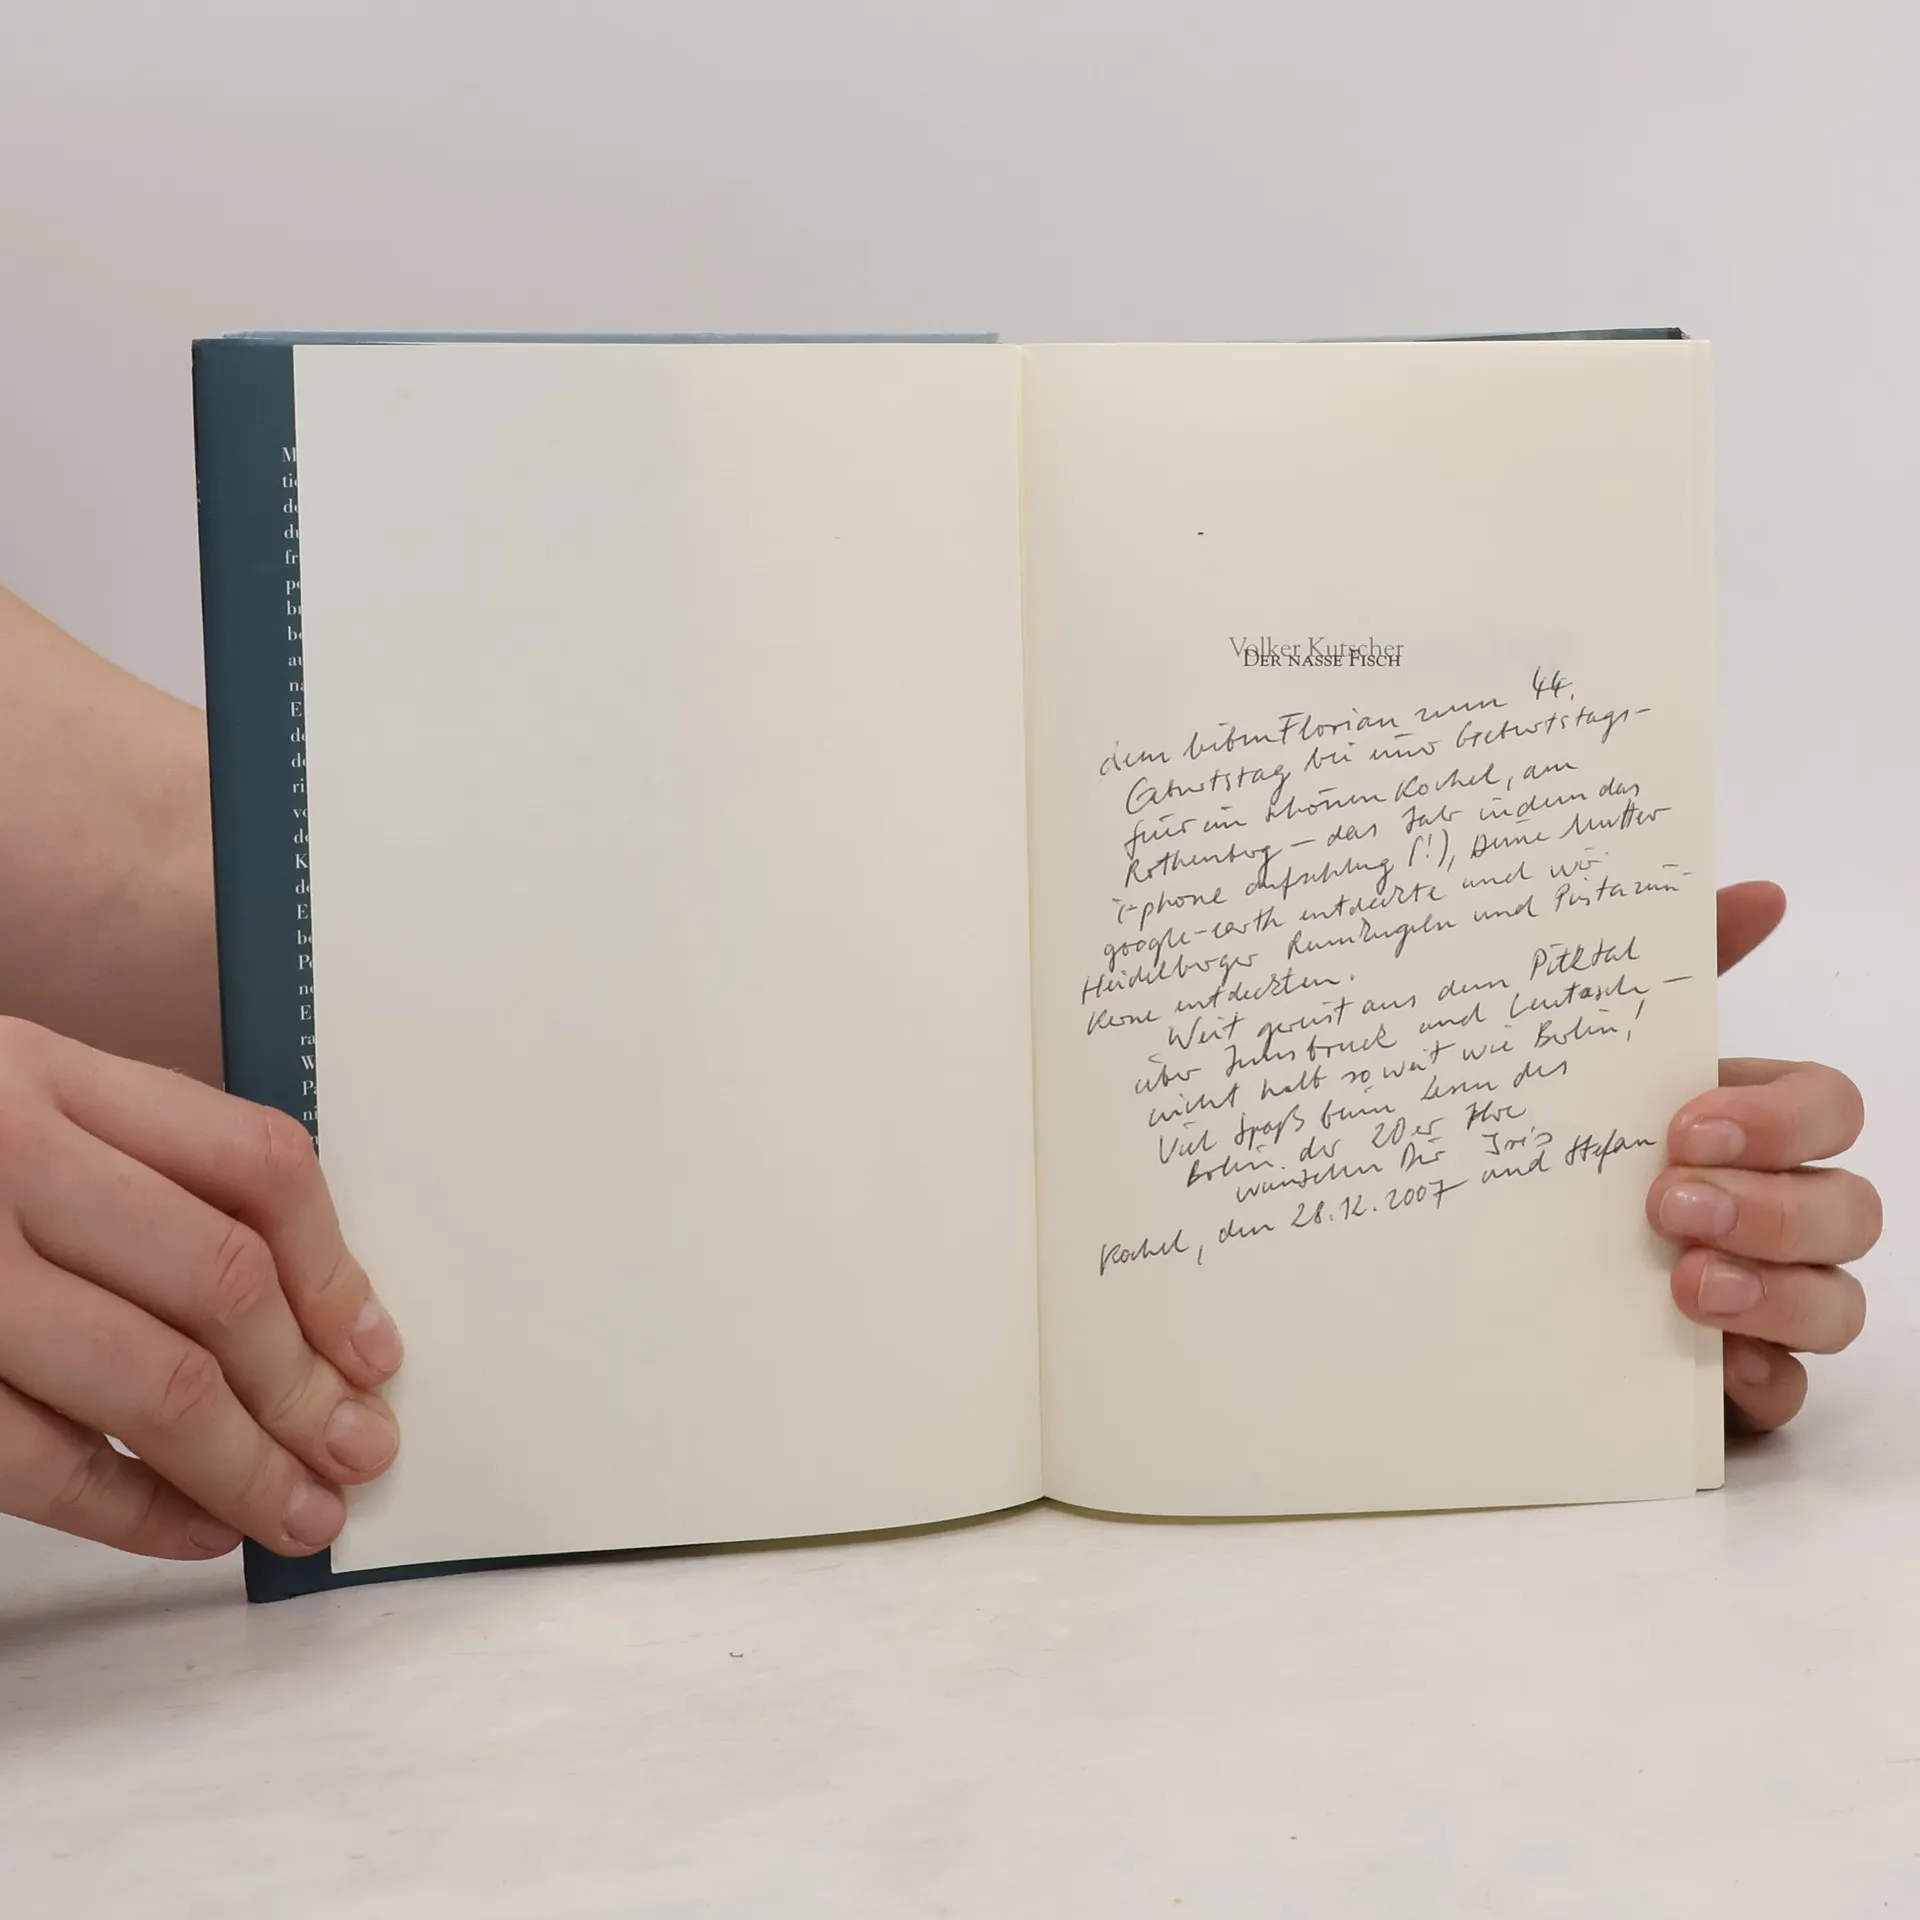 M
tie
de
du
fr
pe
bu
be
au
na
E
de
de
ri
vo
de
K
de
E
be
Po
ne
E
ra
W
Pa
ni
Volker Kutscher
DER NASSE FISCH
dem lieben Florian zum 44.
Geburtstag bei einer Geburtstags-
feier im schönen Kochel, am
Rothenberg – das Jahr in dem das
i-phone aufschlug (!), Deine Mutter
google-earth entdeckte und wir
Heidelberger und Pistazien-
Kerne entdeckten.
Weit gereist aus dem Pitztal
über Innsbruck und Leutasch –
nicht halb so weit wie Berlin!
Viel Spaß beim Lesen des
Berlin der 20er Jhre
wünschen Dir Iris
und Stefan
Kochel, den 28.12.2007